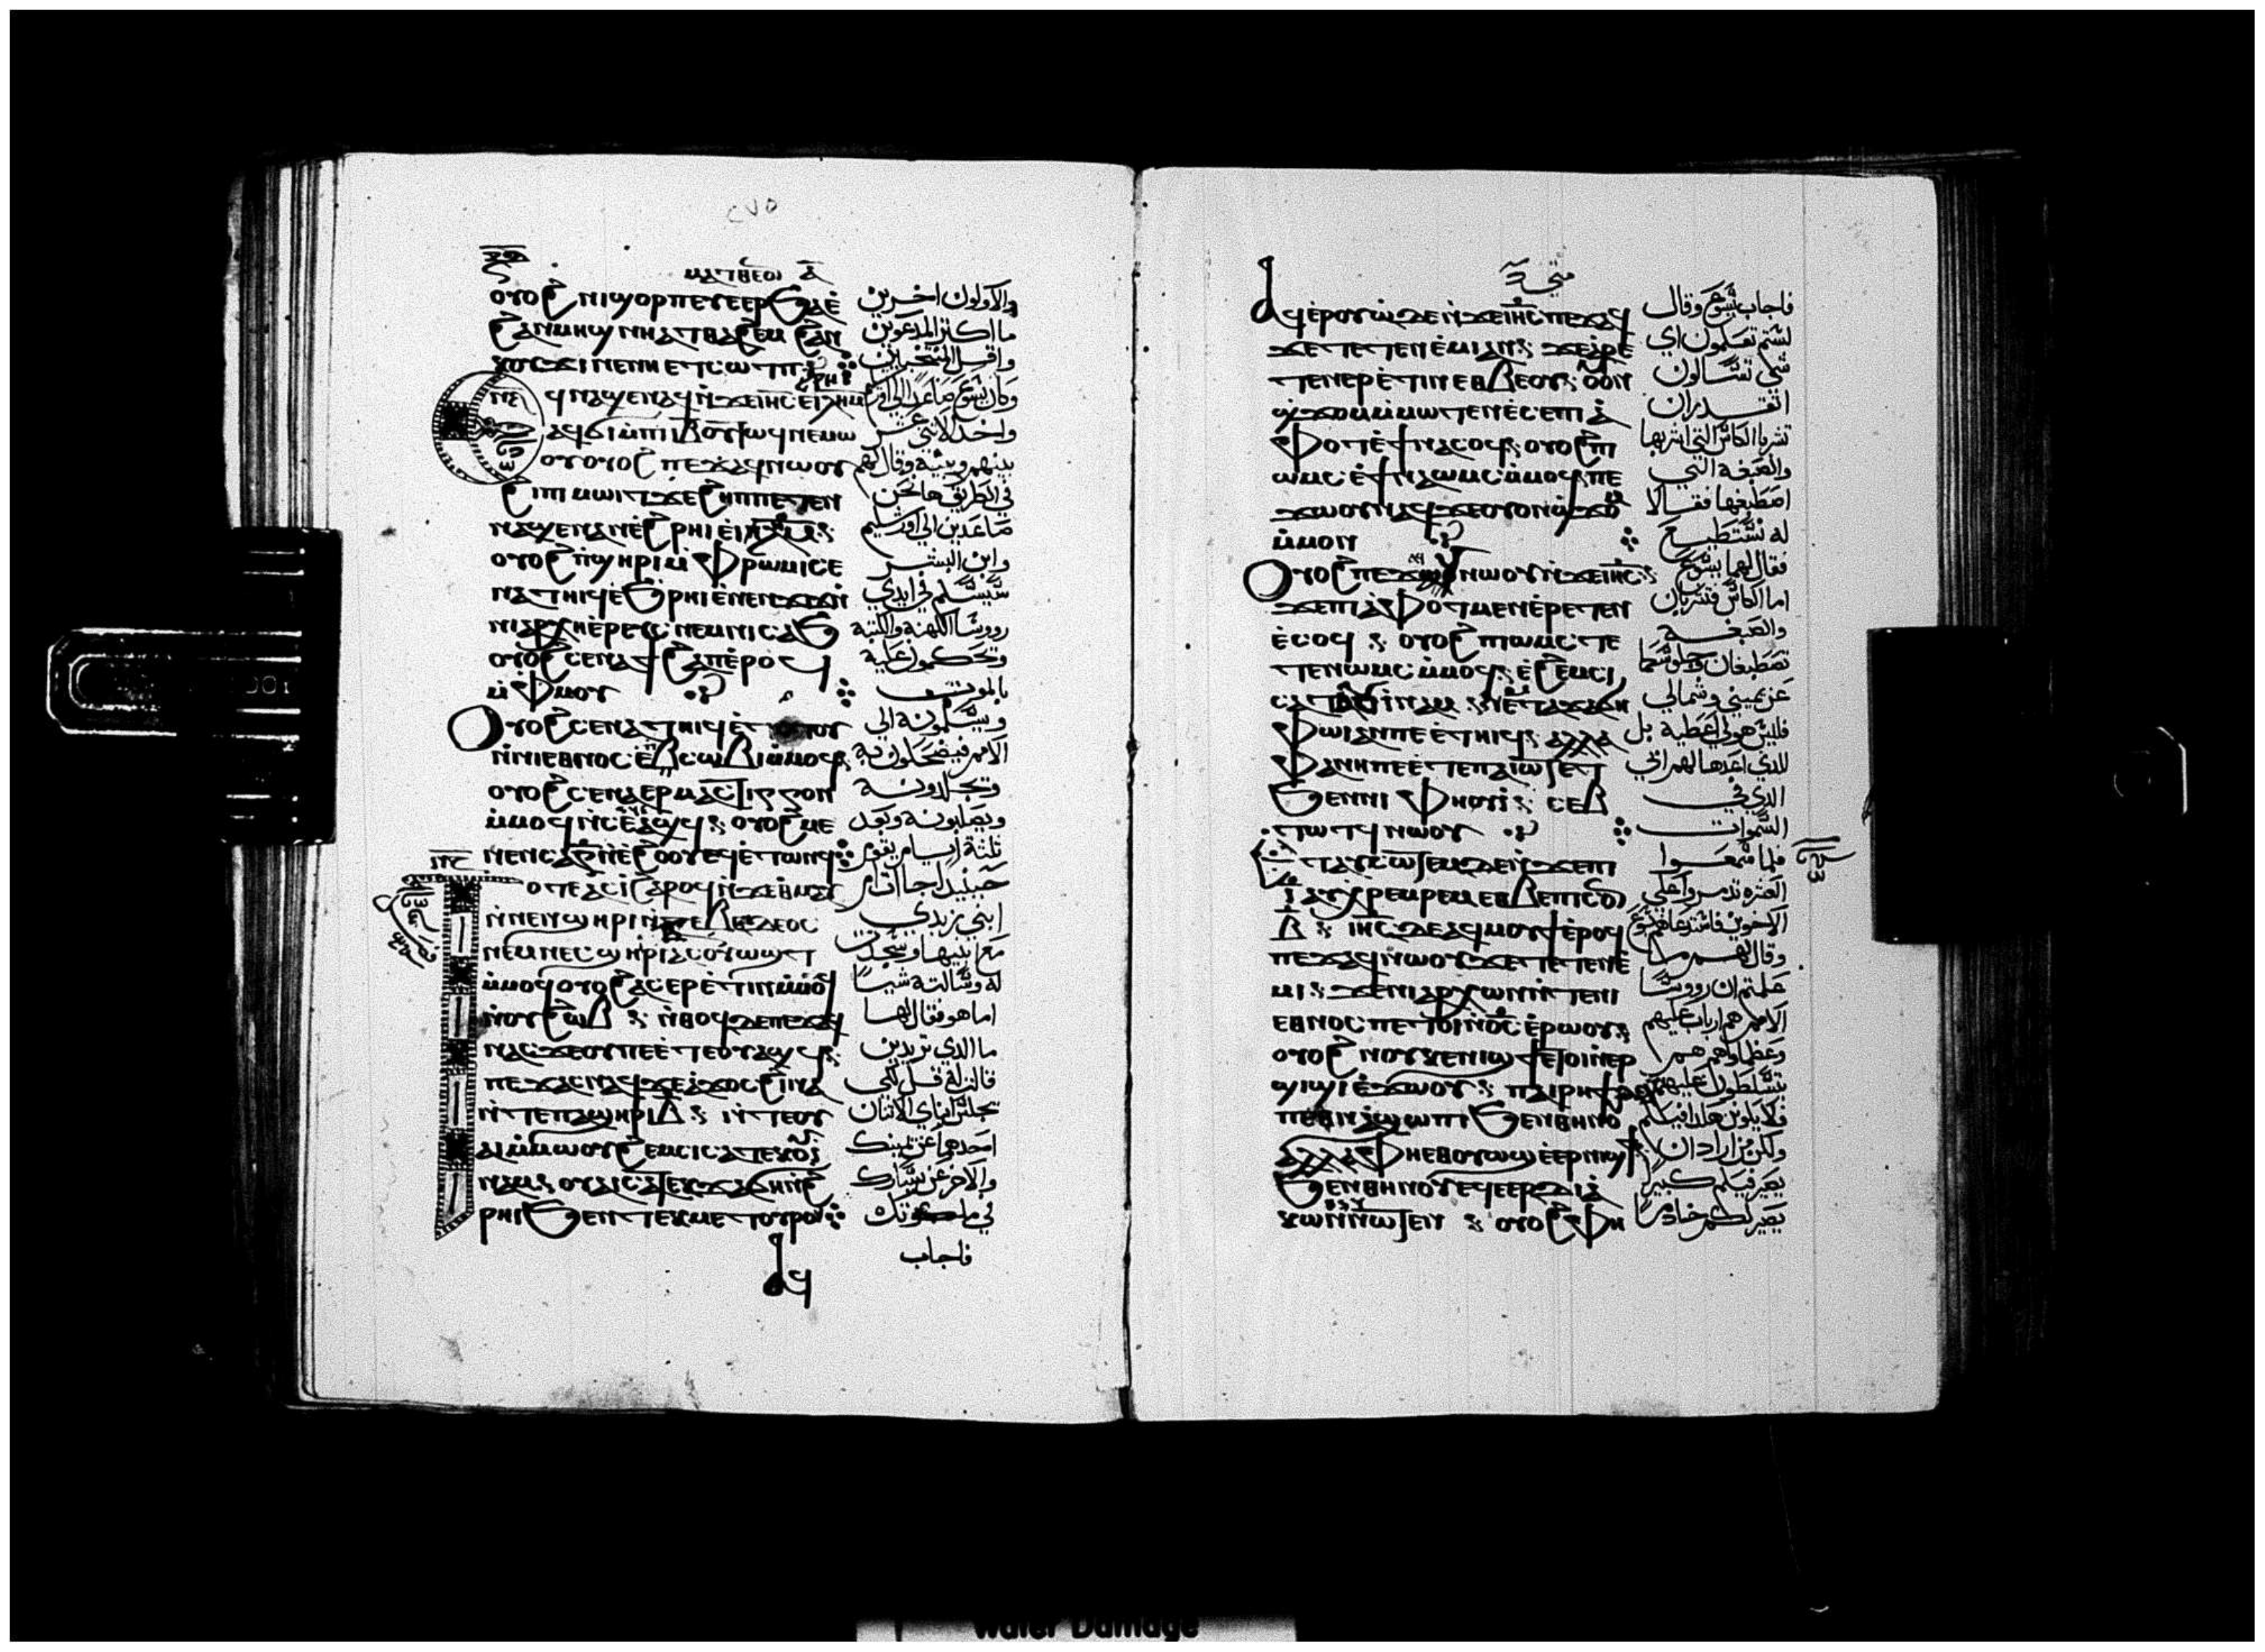 ⲙⲁⲧⲑⲉⲟⲛ ⲁ̅
ⲟⲩⲟϩ ⲛⲓϣⲟⲣⲡ ⲉⲩⲉⲉⲣϧⲁⲉ̀
ϩⲁⲛⲙⲏϣ ⲛⲏⲉⲧⲑⲁϩⲉⲙ ϩⲁⲛ
ⲕⲟⲩϫⲓ ⲛⲉ ⲛⲏⲉⲧⲥⲱⲧⲡ
ϥⲛⲁϣⲉⲛⲁϥ ⲛ̀ϫⲉⲓⲏ̅ⲥ̅ ⲉⲓⲗⲏⲙ
ⲁϥϭⲓ ⲙ̀ⲡⲓⲓ̅ⲃ̅ ⲟⲩⲧⲱϥ ⲛⲉⲙⲱ
ⲟⲩ ⲟⲩⲟϩ ⲡⲉϫⲁϥ ⲛⲱⲟⲩ
ϩⲓ ⲡⲓⲙⲱⲓⲧ ϫⲉ ϩⲏⲡⲡⲉ ⲧⲉⲛ
ⲛⲁϣⲉⲛⲁⲛ ⲉ̀ϩⲣⲏⲓ ⲉ̀ⲓⲗ̅ⲏ̅ⲙ̅
ⲟⲩⲟϩ ⲡ̀ϣⲏⲣⲓ ⲙ̀ⲫⲣⲱⲙⲓ ⲥⲉ
ⲛⲁⲧⲏⲓϥ ⲉ̀ϧⲣⲏⲓ ⲉ̀ⲛⲉⲛϫⲓϫ ⲛ̀
ⲛⲓⲁⲣⲭⲏⲉⲣⲉⲩⲥ ⲛⲉⲙ ⲛⲓⲥⲁϧ
ⲟⲩⲟϩ ⲥⲉⲛⲁϯϩⲁⲡ ⲉ̀ⲣⲟϥ
ⲙ̀ⲫⲙⲟⲩ
ⲟⲩⲟϩ ⲥⲉⲛⲁⲧⲏⲓϥ ⲉ̀ⲧⲟⲧⲟⲩ
ⲛ̀ⲛⲓⲉⲑⲛⲟⲥ ⲉ̀ⲡϫⲓⲛⲥⲱⲃⲓ ⲙ̀ⲙⲟϥ
ⲟⲩⲟϩ ⲥⲉⲛⲁⲉⲣⲙⲁⲥⲧⲓⲅⲅⲟⲓⲛ
ⲙ̀ⲙⲟϥ ⲛ̀ⲥⲉⲁ̀ϣϥ ⲟⲩⲟϩ ⲙⲉ
ⲛⲉⲛⲥⲁ ⲅ̅ ⲛ̀ⲉ̀ϩⲟⲟⲩ ⲉϥⲉ̀ⲧⲱⲛϥ
ⲟⲧⲉ ⲁⲥⲓ̀ ϩⲁⲣⲟϥ ⲛ̀ϫⲉⲑⲙⲁⲩ
ⲛ̀ⲛⲉⲛϣⲏⲣⲓ ⲛ̀ⲍⲉⲃⲉⲇⲉⲟⲥ
ⲛⲉⲙ ⲛⲉⲥϣⲏⲣⲓ ⲁⲥⲟⲩⲱϣⲧ
ⲙ̀ⲙⲟϥ ⲟⲩⲟϩ ⲁⲥⲉⲣⲉ̀ⲧⲓⲛ ⲙ̀ⲙⲟϥ
ⲛ̀ⲟⲩϩⲱⲃ ⲛ̀ⲑⲟϥ ⲇⲉ ⲡⲉϫⲁϥ
ⲛⲁⲥ ϫⲉ ⲟⲩ ⲡⲉ ⲉ̀ⲧⲉⲟⲩⲁϣϥ
ⲡⲉϫⲁⲥ ⲛⲁϥ ϫⲉ ⲁ̀ϫⲟⲥ ϩⲓⲛⲁ
ⲛ̀ⲧⲉ ⲡⲁϣⲏⲣⲓ ⲃ̅ ⲛ̀ⲧⲉ ⲟⲩ
ⲁⲓ ⲙ̀ⲙⲱⲟⲩ ϩⲉⲙⲥⲓ ⲥⲁⲧⲉⲕⲟⲩⲓ̀
ⲛⲁⲙ ⲟⲩⲁⲓ ⲥⲁⲧⲉⲕϫⲁϭⲏ ⲛ̀ϩ
ⲣⲏⲓ ϧⲉⲛ ⲧⲉⲕⲙⲉⲧⲟⲩⲣⲟ
ⲁϥ
والاولون اخرين
ما اكثر المدعوين
واقل المنتخبين
وكان يسوع صاعدا الى اورشليم
واخد الاثني عشر
بينهم وبينه وقال لهم
في الطريق ها نحن
صاعدين الى اورشليم
وابن البشر
سيسلم في ايدي
روسا الكهنة والكتبة
وتحكمون علية
بالموت
ويسلمونه الى
الامم فيضحكون به
وتجلدونه
ويصلبونه وبعد
ثلثة ايام يقوم
حينيد جاات ام
ابني زبدي
مع ابنيها وسجدت
له وسالته شيا
اما هو فقال لها
ما الدي تريدين
قالت له قل لكي
تجلس ابناي الاتنان
احدهما عن يمينك
والاخر عن يسارك
في ملكوتك
فاجاب
متى
ⲁϥⲉ̀ⲣⲟⲩⲱ̀ ⲇⲉ ⲛ̀ϫⲉⲓⲏ̅ⲥ̅ ⲡⲉϫⲁϥ
ϫⲉ ⲧⲉⲧⲉⲛⲉ̀ⲙⲓ ⲁⲛ ϫⲉ ⲁ̀ⲣⲉ
ⲧⲉⲛⲉⲣⲉ̀ⲧⲓⲛ ⲉⲑⲃⲉⲟⲩ ⲟⲩⲟⲛ
ϣϫⲟⲙ ⲙ̀ⲙⲱⲧⲉⲛ ⲉ̀ⲥⲉ ⲡⲓⲁ̀
ⲫⲟⲧ ⲉ̀ϯⲛⲁⲥⲟϥ ⲟⲩⲟϩ ⲡⲓ
ⲱⲙⲥ ⲉ̀ϯⲛⲁⲱⲙⲥ ⲙ̀ⲙⲟϥ ⲡⲉ
ϫⲱⲟⲩ ⲛⲁϥ ϫⲉ ⲟⲩⲟⲛϣϫⲟ
ⲙ̀ⲙⲟⲛ
ⲟⲩⲟϩ ⲡⲉϫⲁϥ ⲛⲱⲟⲩ ⲛ̀ϫⲉⲓⲏ̅ⲥ̅
ϫⲉ ⲡⲓⲁ̀ⲫⲟⲧ ⲙⲉⲛ ⲉ̀ⲣⲉⲧⲉⲛ
ⲉ̀ⲥⲟϥ ⲟⲩⲟϩ ⲡⲓⲱⲙⲥ ⲧⲉ
ⲧⲉⲛⲱⲙⲥ ⲙ̀ⲙⲟϥ ⲉ̀ϩⲉⲙⲥⲓ
ⲥⲁⲧⲁⲟⲩⲓ̀ⲛⲁⲙ ⲛⲉⲙ ⲧⲁϫⲁϭⲏ
ⲫⲱⲓ ⲁⲛ ⲡⲉ ⲉ̀ⲧⲏⲓϥ ⲁⲗⲗⲁ
ⲫⲁⲛⲏ ⲡⲉ ⲉ̀ⲧⲉ ⲡⲁⲓⲱⲧ ⲉⲧ
ϧⲉⲛ ⲛⲓⲫⲏⲟⲩⲓ̀ ⲥⲉⲃ
ⲧⲱⲧϥ ⲛⲱⲟⲩ
ⲉⲧⲁⲩⲥⲱⲧⲉⲙ ⲇⲉ ⲛ̀ϫⲉⲡⲓ
ⲓ̅ ⲁⲩⲭⲣⲉⲙⲣⲉⲙ ⲉⲑⲃⲉ ⲡⲓⲥⲟⲛ
ⲃ̅ ⲓⲏ̅ⲥ̅ ⲇⲉ ⲁϥⲙⲟⲩϯ ⲉ̀ⲣⲟϥ
ⲡⲉϫⲁϥ ⲛⲱⲟⲩ ϫⲉ ⲧⲉⲧⲉⲛⲉ̀
ⲙⲓ ϫⲉ ⲛⲓⲁⲣⲭⲱⲛ ⲛ̀ⲧⲉ ⲛⲓ
ⲉⲑⲛⲟⲥ ⲡⲉⲧⲟⲓ ⲛ̀ⲟ̅ⲥ̅ ⲉ̀ⲣⲱⲟⲩ
ⲟⲩⲟϩ ⲛⲟⲩⲕⲉⲛⲓϣϯ ⲉⲧⲟⲓ ⲛ̀ⲉⲣ
ϣⲓϣⲓ ⲉ̀ϫⲱⲟⲩ ⲡⲁⲓⲣⲏϯ ⲇⲉ
ⲡⲉⲑⲛⲁϣⲱⲡⲓ ϧⲉⲛ ⲑⲏⲛⲟ
ⲁⲗⲗⲁ ⲫⲏⲉⲑⲟⲩⲱϣ ⲉ̀ⲉⲣⲛⲓϣϯ
ϧⲉⲛ ⲑⲏⲛⲟⲩ ⲉϥⲉⲉⲣⲇⲓⲁ̀
ⲕⲱⲛ ⲛⲱⲧⲉⲛ ⲟⲩⲟϩ ⲫⲏ
فاجاب يسوع وقال
لستم تعلمون اي
شي تسالون
اتقدران
تشربا الكاس التي اشربها
والصبغه التي
اصطبغها فقالا
له نستطيع
فقال لهما يسوع
اما الكاس فتشربان
والصبغه
تصطبغان وجلوسكما
عن يميني وشمالي
فليس هو لي اعطيه بل
للدي اعدها لهم ابي
الدي في
السموات
فلما سمعوا
العشره تدمروا على
الاخوين
وقال لهم
علمتم ان روسا
الامم هم ارباب عليهم
وعظماوهم هم
يتسلطون عليهم
فلا يكون هكدا فيكم
ولكن من اراد ان
يصير فيكم كبيرا
يصير لكم خادما
Water Damage